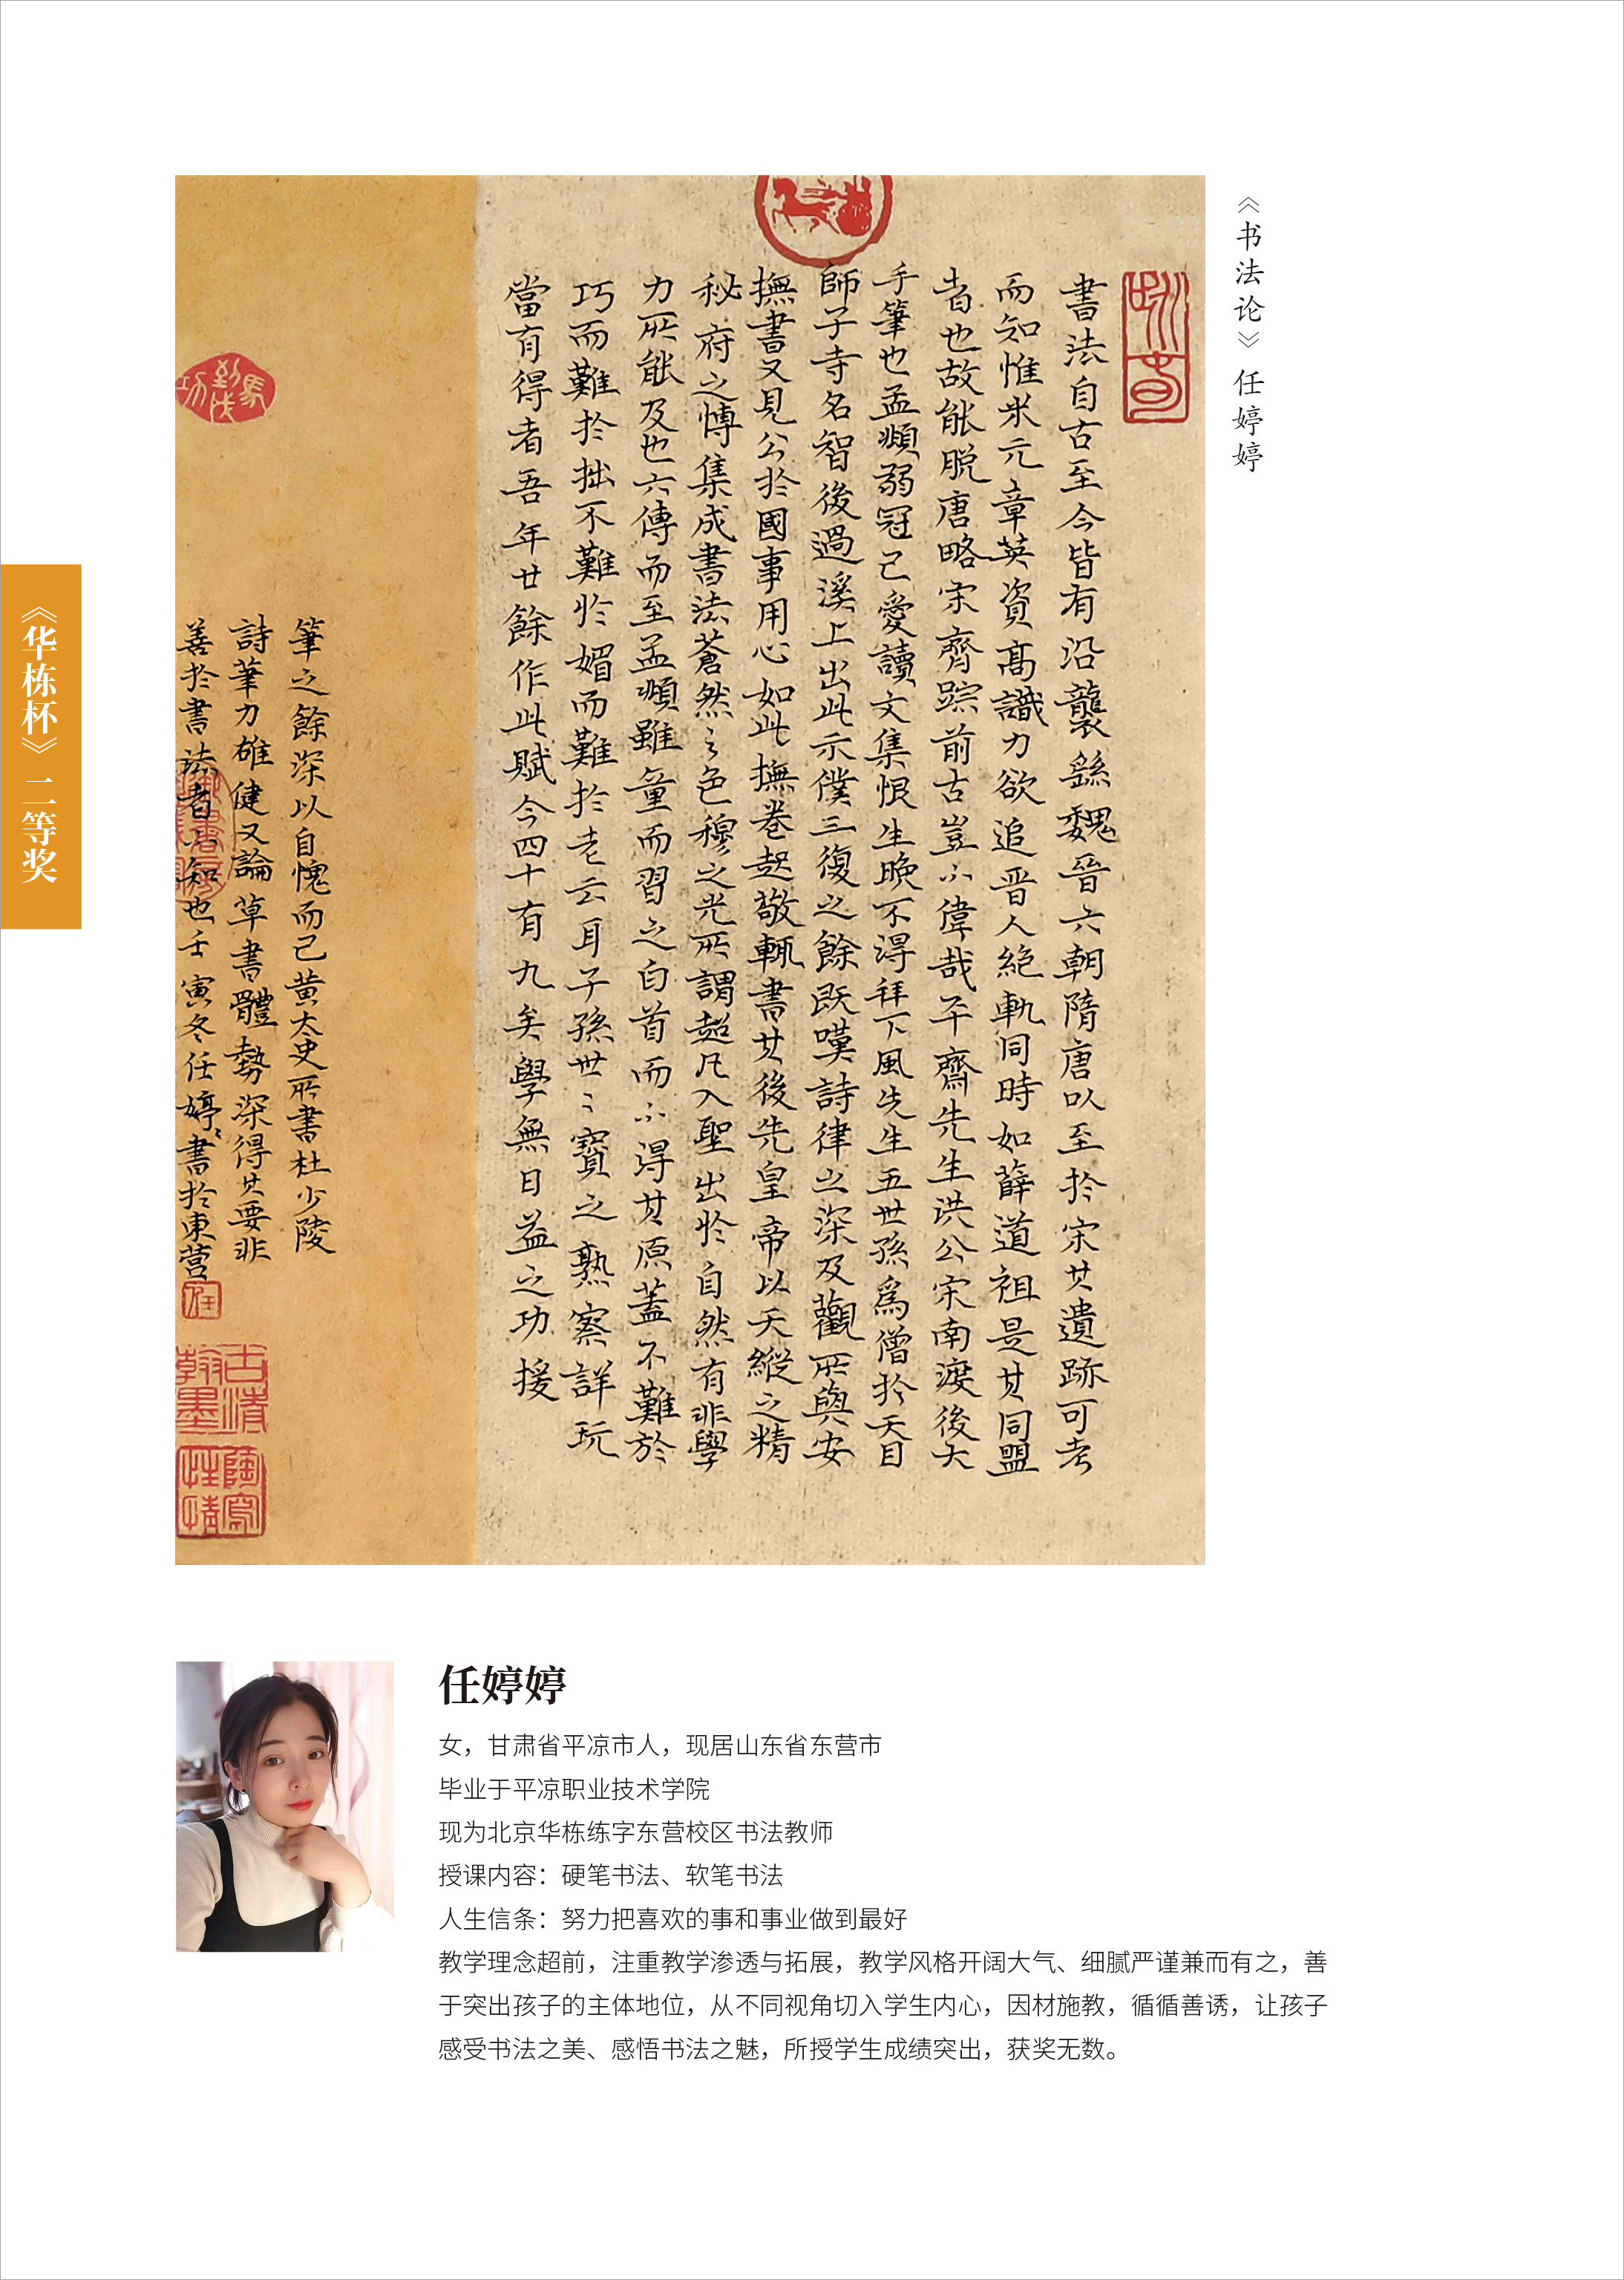 《书法论》 任婷婷
書法自古至今皆有沿襲繇魏晉六朝隋唐以至於宋其遺跡可考
而知惟米元章英資高識力欲追晋人絶軌同時如薛道祖是其同盟
者也故能脱唐略宋齊踪前古豈不偉哉平齋先生洪公宋南渡後大
手筆也孟頫弱冠已愛讀文集恨生晚不得拜下風先生五世孫爲僧於天目
師子寺名智後過溪上出此示僕三復之餘既嘆詩律之深及觀所與安
撫書又見公於國事用心如此撫卷起敬輒書其後先皇帝以天縱之精
秘府之博集成書法蒼然之色穆之光所謂超凡入聖出於自然有非學
力所能及也六傳而至孟頫雖童而習之白首而不得其原蓋不難於
巧而難於拙不難於媚而難於老云耳子孫世〻寳之熟察詳玩
當有得者吾年廿餘作此賦今四十有九矣學無日益之功援
筆之餘深以自愧而已黄太史所書杜少陵
詩筆力雄健又論草書體勢深得其要非
善於書法者不知也壬寅冬任婷〻書於東营
馬到成功
任
古淸翰墨
陶寫性情
《华栋杯》二等奖
任婷婷
女，甘肃省平凉市人，现居山东省东营市
毕业于平凉职业技术学院
现为北京华栋练字东营校区书法教师
授课内容：硬笔书法、软笔书法
人生信条：努力把喜欢的事和事业做到最好
教学理念超前，注重教学渗透与拓展，教学风格开阔大气、细腻严谨兼而有之，善
于突出孩子的主体地位，从不同视角切入学生内心，因材施教，循循善诱，让孩子
感受书法之美、感悟书法之魅，所授学生成绩突出，获奖无数。